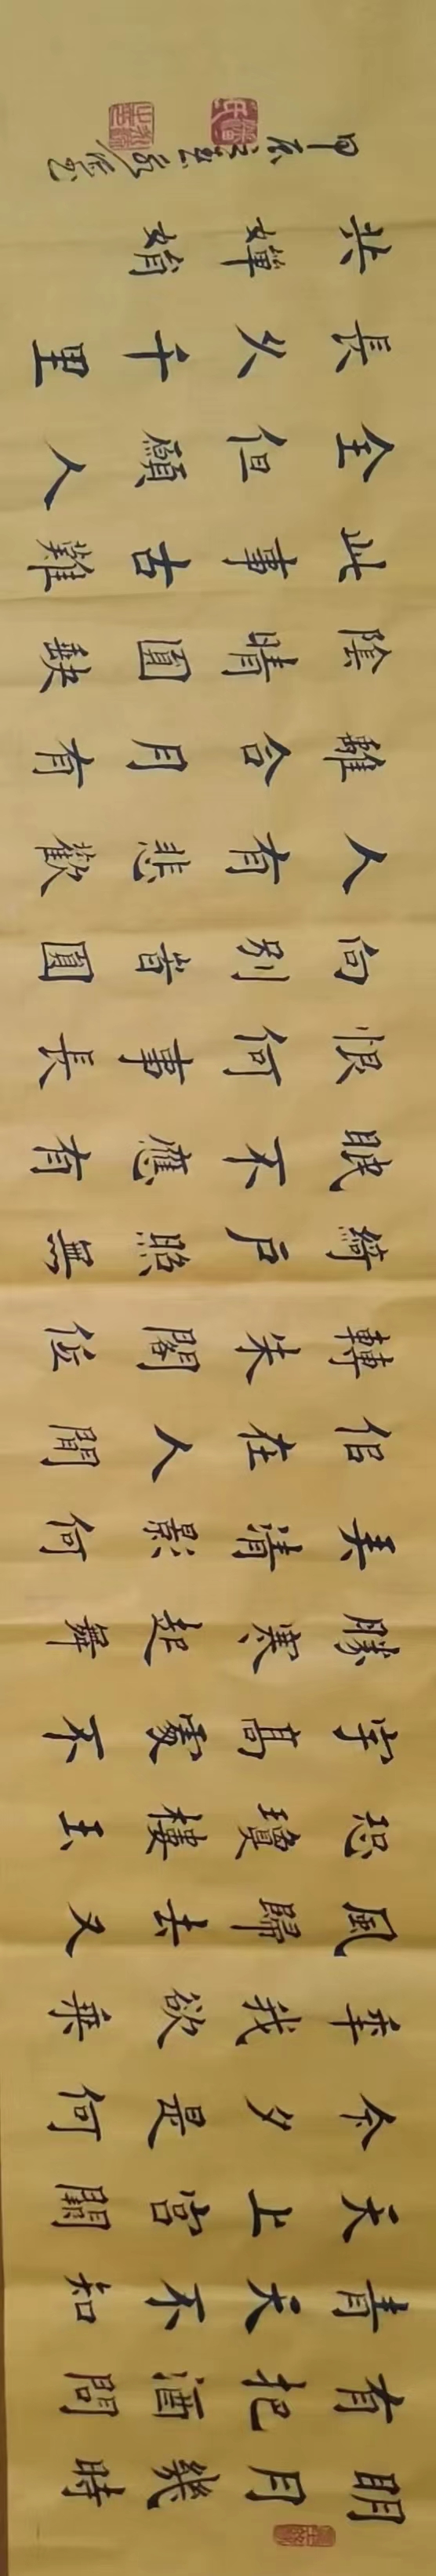 明月幾時
有把酒問
青天不知
天上宮闕
今夕是何
年我欲乘
風歸去又
恐瓊樓玉
宇高處不
勝寒起舞
弄清影何
佀在人間
轉朱閣低
綺戶照無
眠不應有
恨何事長
向別旹圓
人有悲歡
離合月有
陰晴圓缺
此事古難
全但願人
長久千里
共嬋娟
甲辰